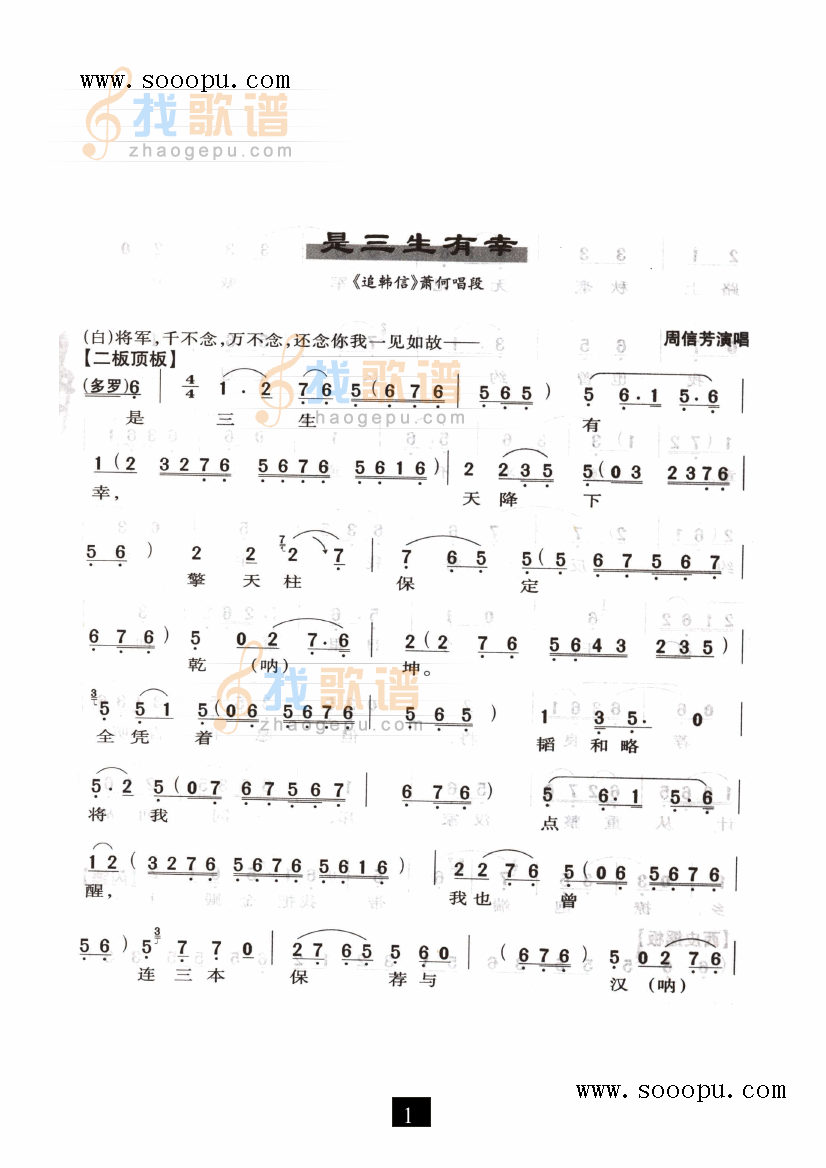 www.sooopu.com
找歌谱
zhaogepu.com
是三生有幸
《追韩信》萧何唱段
(白)将军,千不念,万不念,还念你我一见如故——
周信芳演唱
【二板顶板】
(多罗)6 4/4 1 . 2 7 6 5 ( 6 7 6 | 5 6 5 ) 5 6 . 1 5 . 6 |
是 三 生 有
1 ( 2 3 2 7 6 5 6 7 6 5 6 1 6 ) | 2 2 3 5 5 ( 0 3 2 3 7 6 |
幸, 天 降 下
5 6 ) 2 2 7 2 7 | 7 6 5 5 ( 5 6 7 5 6 7 |
擎 天 柱 保 定
6 7 6 ) 5 0 2 7 . 6 | 2 ( 2 7 6 5 6 4 3 2 3 5 ) |
乾 (呐) 坤。
3 5 5 1 5 ( 0 6 5 6 7 6 | 5 6 5 ) 1 3 5 . 0 |
全 凭 着 韬 和 略
5 . 2 5 ( 0 7 6 7 5 6 7 | 6 7 6 ) 5 6 . 1 5 . 6 |
将 我 点
1 2 ( 3 2 7 6 5 6 7 6 5 6 1 6 ) | 2 2 7 6 5 ( 0 6 5 6 7 6 |
醒, 我 也 曾
5 6 ) 5 3 7 7 0 | 2 7 6 5 5 6 0 | ( 6 7 6 ) 5 0 2 7 6 |
连 三 本 保 荐 与 汉 (呐)
www.sooopu.com
1